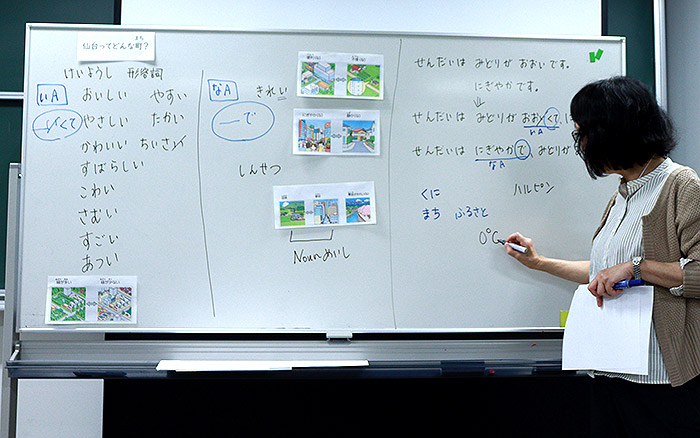 まち
仙台ってどんな町?
けいようし 形容詞
いA おいしい やすい
いくて やさしい たかい
かわいい ちいさい
すばらしい
こわい
さむい
すごい
あつい
なA きれい
ーで
しんせつ
Noun めいし
せんだいは みどりが おおいです。
にぎやかです。
せんだいは みどりが おおくて、に
いA
せんだいは にぎやかで、みどりが
なA
くに ハルピン
まち ふるさと
0℃